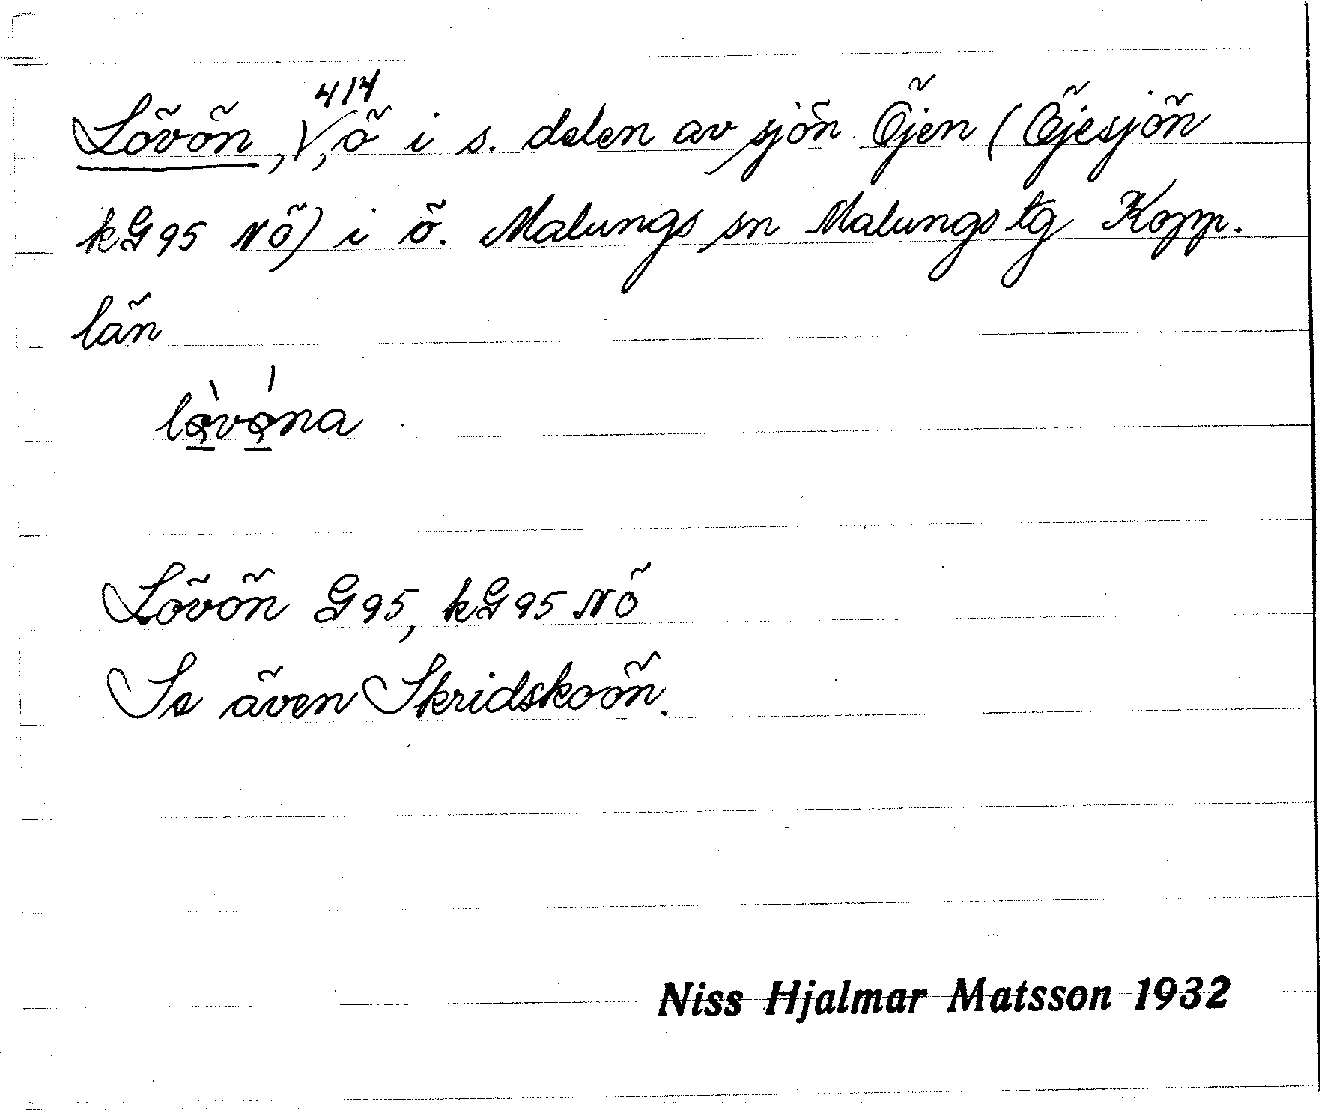 Lövön, 414 ö i s. delen av sjön Öjen (Öjesjön
kG95 NÖ) i ö. Malungs sn Malungs tg Kopp.
län
lǫ̀vǫ́na
Lövön G95, kG95 NÖ
Se även Skridskoön.
Niss Hjalmar Matsson 1932